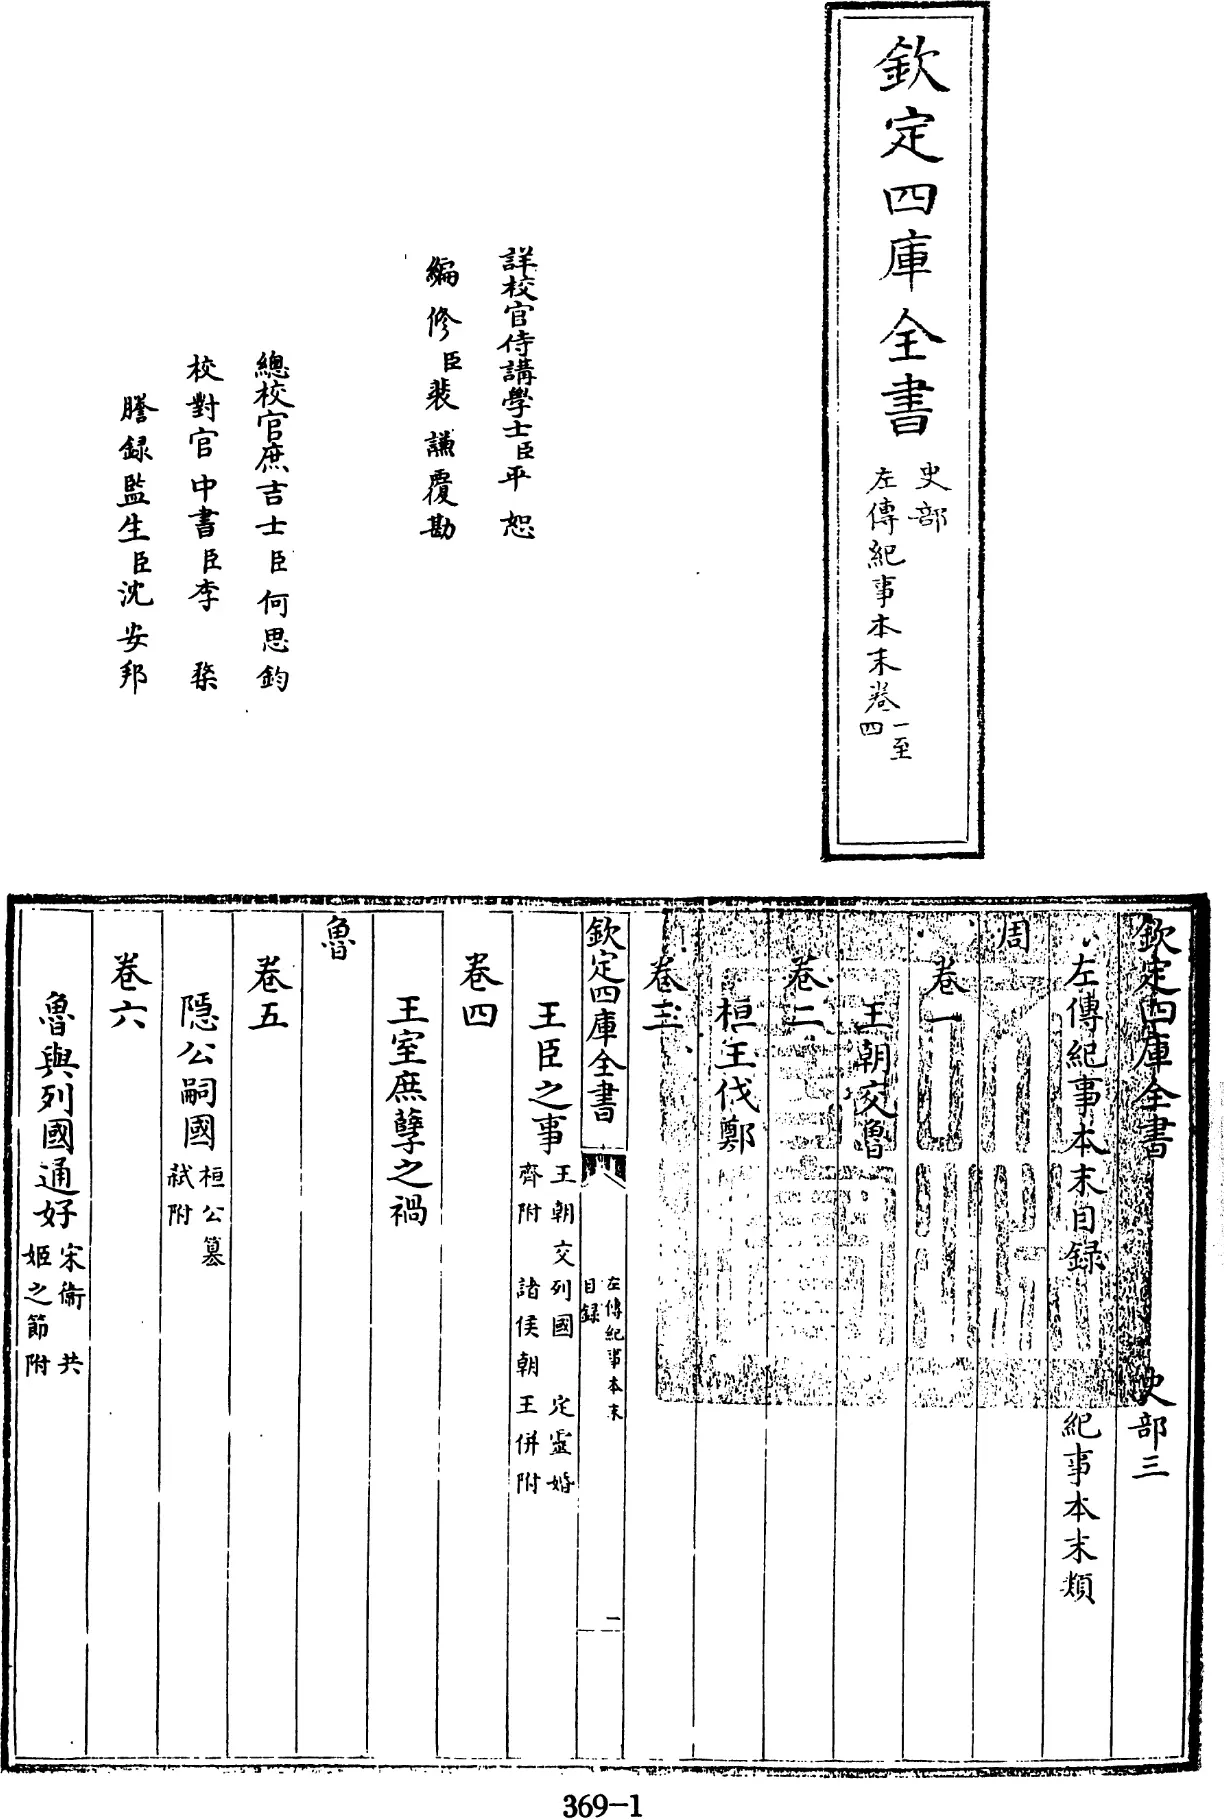 欽定四庫全書
史部
左傳紀事本末卷一至四
詳校官侍講學士臣平恕
編修臣裴謙覆勘
總校官庶吉士臣何思鈞
校對官中書臣李楘
謄録監生臣沈安邦
欽定四庫全書 史部三
左傳紀事本末目録 紀事本末類
周
卷一
王朝交魯
卷二
桓王伐鄭
卷三
欽定四庫全書
左傳紀事本末
目録
一
王臣之事 王朝交列國 定靈婚
齊附 諸侯朝王併附
卷四
王室庶孽之禍
魯
卷五
隱公嗣國 桓公簒
弑附
卷六
魯與列國通好 宋衞 共
姬之節附
369-1